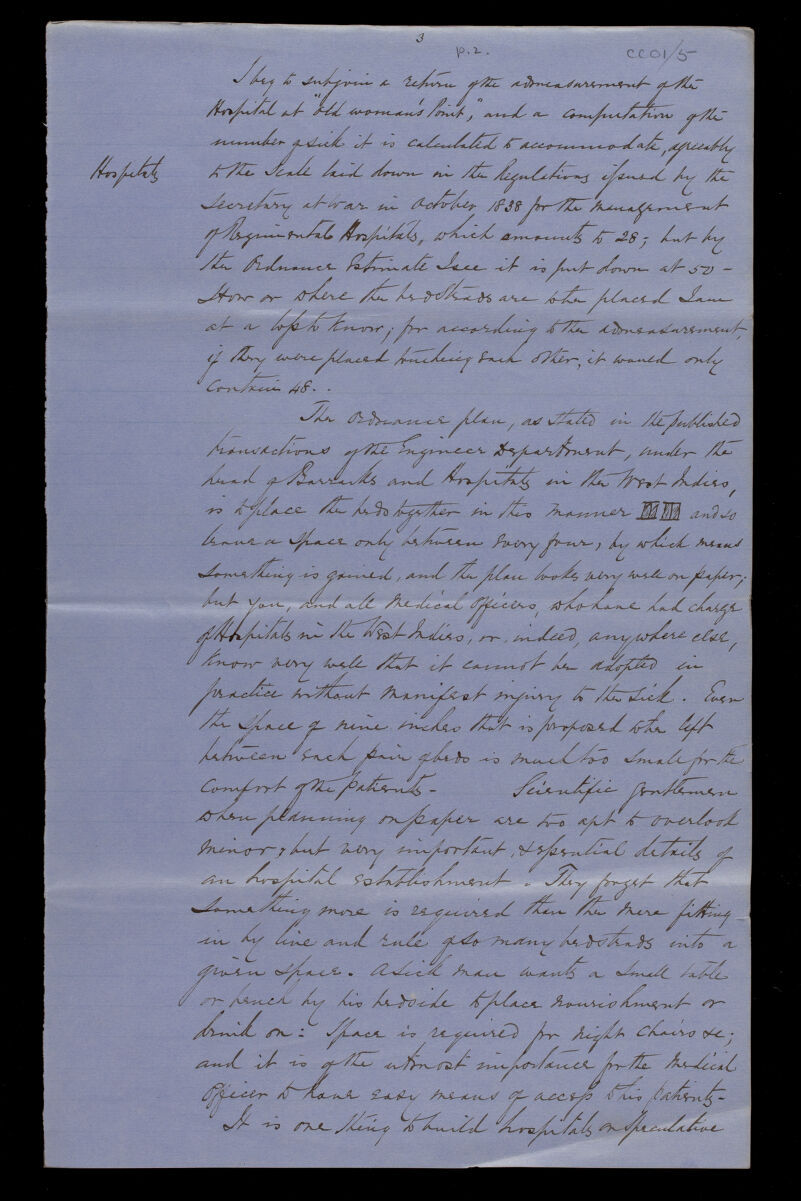 3
p. 2.
CC01/5
I beg to subjoin a return of the admeasurement of the
Hospital at "Old woman's Point", and a computation of the
number of sick it is calculated to accommodate, agreeably
Hospitals
to the Scale laid down in the Regulations issued by the
Secretary at War in October 1838 for the management
of Regimental Hospitals, which amounts to 28; but by
the Ordnance Estimate I see it is put down at 50 -
How or where the bedsteads are to be placed I am
at a loss to know; for according to the admeasurement,
if they were placed touching each other, it would only
contain 48.
The Ordnance plan, as stated in the published
transactions of the Engineer Department, under the
head of Barracks and Hospitals in the West Indies,
is to place the beds together in this manner and so
leave a space only between every four, by which means
something is gained, and the plan looks very well on paper;
but you, and all Medical Officers, who have had charge
of Hospitals in the West Indies, or, indeed, anywhere else,
know very well that it cannot be adopted in
practice without manifest injury to the sick. Even
the space of nine inches that is proposed to be left
between each pair of beds is much too small for the
comfort of the patients - Scientific gentlemen
when planning on paper are too apt to overlook
minor, but very important, & essential details of
an hospital establishment. They forget that
something more is required than the mere fitting
in by line and rule of so many bedsteads into a
given space. A sick man wants a small table
or bench by his bedside to place nourishment or
drink on: Space is required for night chairs &c;
and it is of the utmost importance for the Medical
Officer to have easy means of access to his patients -
It is one thing to build hospitals on speculative